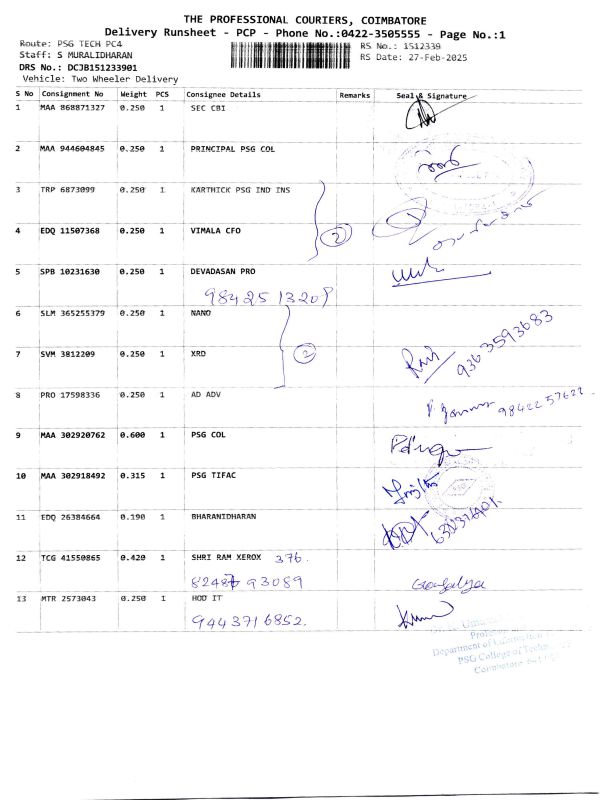 THE PROFESSIONAL COURIERS, COIMBATORE
Delivery Runsheet - PCP - Phone No.:0422-3505555 - Page No.:1
Route: PSG TECH PC4
RS No.: 1512339
Staff: S MURALIDHARAN
RS Date: 27-Feb-2025
DRS No.: DCJB151233901
Vehicle: Two Wheeler Delivery
S No Consignment No Weight PCS Consignee Details Remarks Seal & Signature
1 MAA 868871327 0.250 1 SEC CBI
2 MAA 944604845 0.250 1 PRINCIPAL PSG COL
3 TRP 6873099 0.250 1 KARTHICK PSG IND INS
2
4 EDQ 11507368 0.250 1 VIMALA CFO
5 SPB 10231630 0.250 1 DEVADASAN PRO
9842513209
6 SLM 365255379 0.250 1 NANO
2
7 SVM 3812209 0.250 1 XRD
9363593683
8 PRO 17598336 0.250 1 AD ADV
9842257622
9 MAA 302920762 0.600 1 PSG COL
10 MAA 302918492 0.315 1 PSG TIFAC
11 EDQ 26384664 0.190 1 BHARANIDHARAN
12 TCG 41550865 0.420 1 SHRI RAM XEROX 376.
93089
13 MTR 2573043 0.250 1 HOD IT
9443716852.
Department of Information
PSG College of Technology
Coimbatore